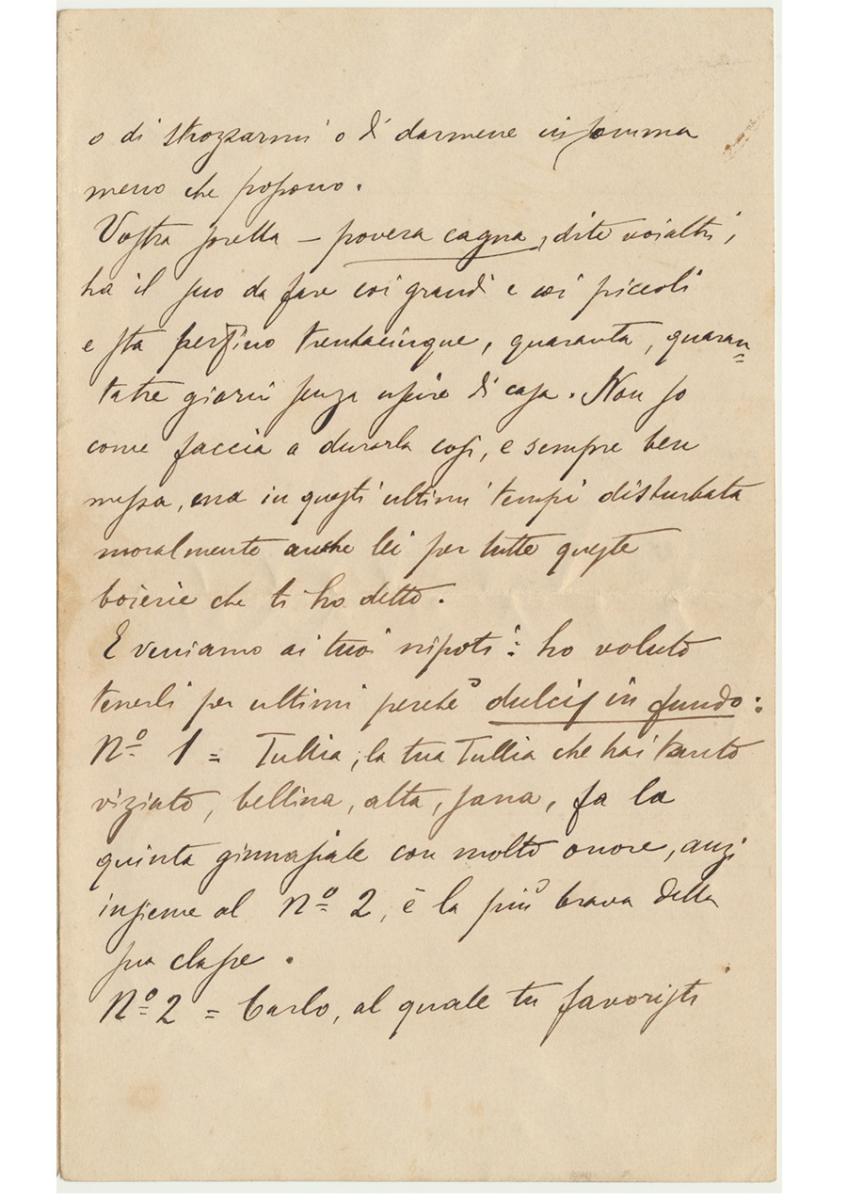 o di strozzarmi o di darmene in somma
meno che possono.
Vostra sorella – povera cagna, dite voialtri,
ha il suo da fare coi grandi e coi piccoli
e sta perfino trentacinque, quaranta, quaran=
tatre giorni senza uscire di casa. Non so
come faccia a durarla così, e sempre ben
messa, ma in questi ultimi tempi disturbata
moralmente anche lei per tutte queste
boierie che ti ho detto.
E veniamo ai tuoi nipoti: ho voluto
tenerli per ultimi perchè dulcis in fundo:
No 1 = Tullia, la tua Tullia che hai tanto
viziato, bellina, alta, sana, fa la
quinta ginnasiale con molto onore, anzi
insieme al No 2, è la più brava della
sua classe.
No 2 = Carlo, al quale tu favoristi